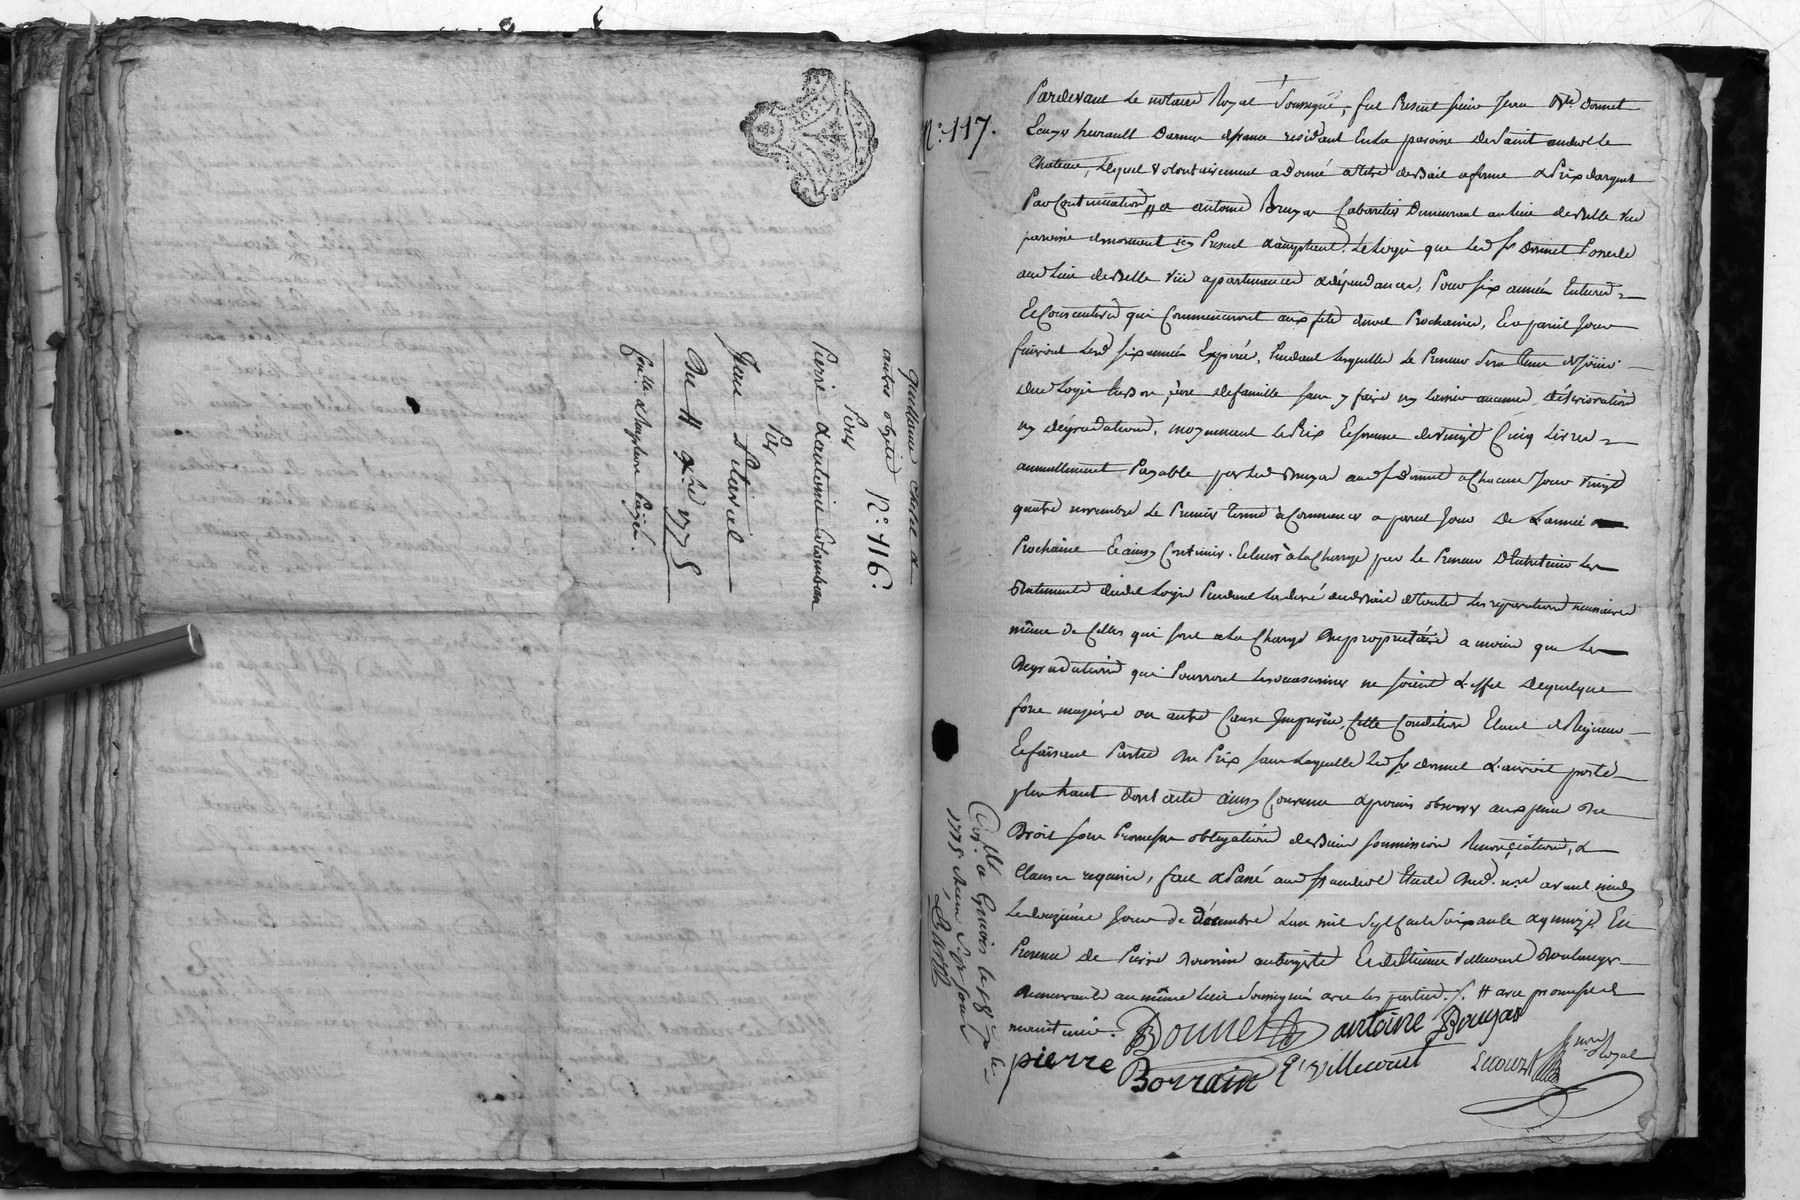 quittance cedée &
autres objets N.° 116.
Pour
Pierre & antoine Colomban
Par
Jean Vitarel
Du 11 x.bre 1775
Con.lle & Amplure Payé.
N.° 117.
Pardevant Le notaire Royal Soussigné, fut Present sieur Jean Bte. Donnet
ancien heirault Darme de france residant En La paroise de Saint andeol le
Chateau, Lequel volontairement a donné a titre de Bail a ferme a Prix dargent
Par Continuation a antoine Bruyas Cabaretier Demeurant au Lieu de Belle vue
paroise de mornant icy Present & acceptant. Le Logis que Led. Sr. Donnet Possede
aud. Lieu de Belle vüe apartenances & dépendances, Pour six années Entieres
Et Consecutives qui Commenceront aux fete de noel Prochaines, Et a pareil Jour
finiront Lesd. six années Expirée, Pendant Lesquelle Le Preneur Sera Tenu de Jouir
dud. Logis En Bon pere de famille sans y faire ny Laisser aucune détérioration
ny dégradations, moyennant Le Prix Et somme de vingt Cinq Livres
annuellement Payable par Led. Bruyas aud. Sr. Donnet a Chacun Jour vingt
quatre novembre Le Premier terme à Commencer a pareil Jour De L'année
Prochaine Et ainsy Continuer. Et En outre à la Charge par le Preneur D'Entretenir Les
Batiments dudit Logis Pendant La durée dud. Bail de toutes Les reparations necessaires
même de Celles qui sont a La Charge Du propriétaire a moins que Les
Degradations qui Pourront Les occasionner ne soient L'effet De quelque
force majeure ou autre Cause Imprévue, Cette Condition Etant de Rigueur
Et faisant Partie Du Prix sans Laquelle Led. Sr. Donnet L'auroit porté
plus haut dont acte ainsy Convenu & promis observer aux peine De
Droit sous Promesse obligations de Biens soumission Renonçiations, &
Clauses requises, fait & Passé aud. St. andeol Etude Dud. nre. avant midy
Le douzième Jour de décembre L'an mil Sept Cent Soixante & quinze. En
Presence de Pierre Bourrin aubergiste Et de Etienne Villecourt Boulanger
Demeurants au même Lieu Soussignés avec Les parties. /. # avec promesse de
maintenir.
Donnet antoine Bruyas
pierre Borrain E. Villecourt
nre. Royal
Con.llé a Givors le 18 x.bre
1775. Reçu Sept sous